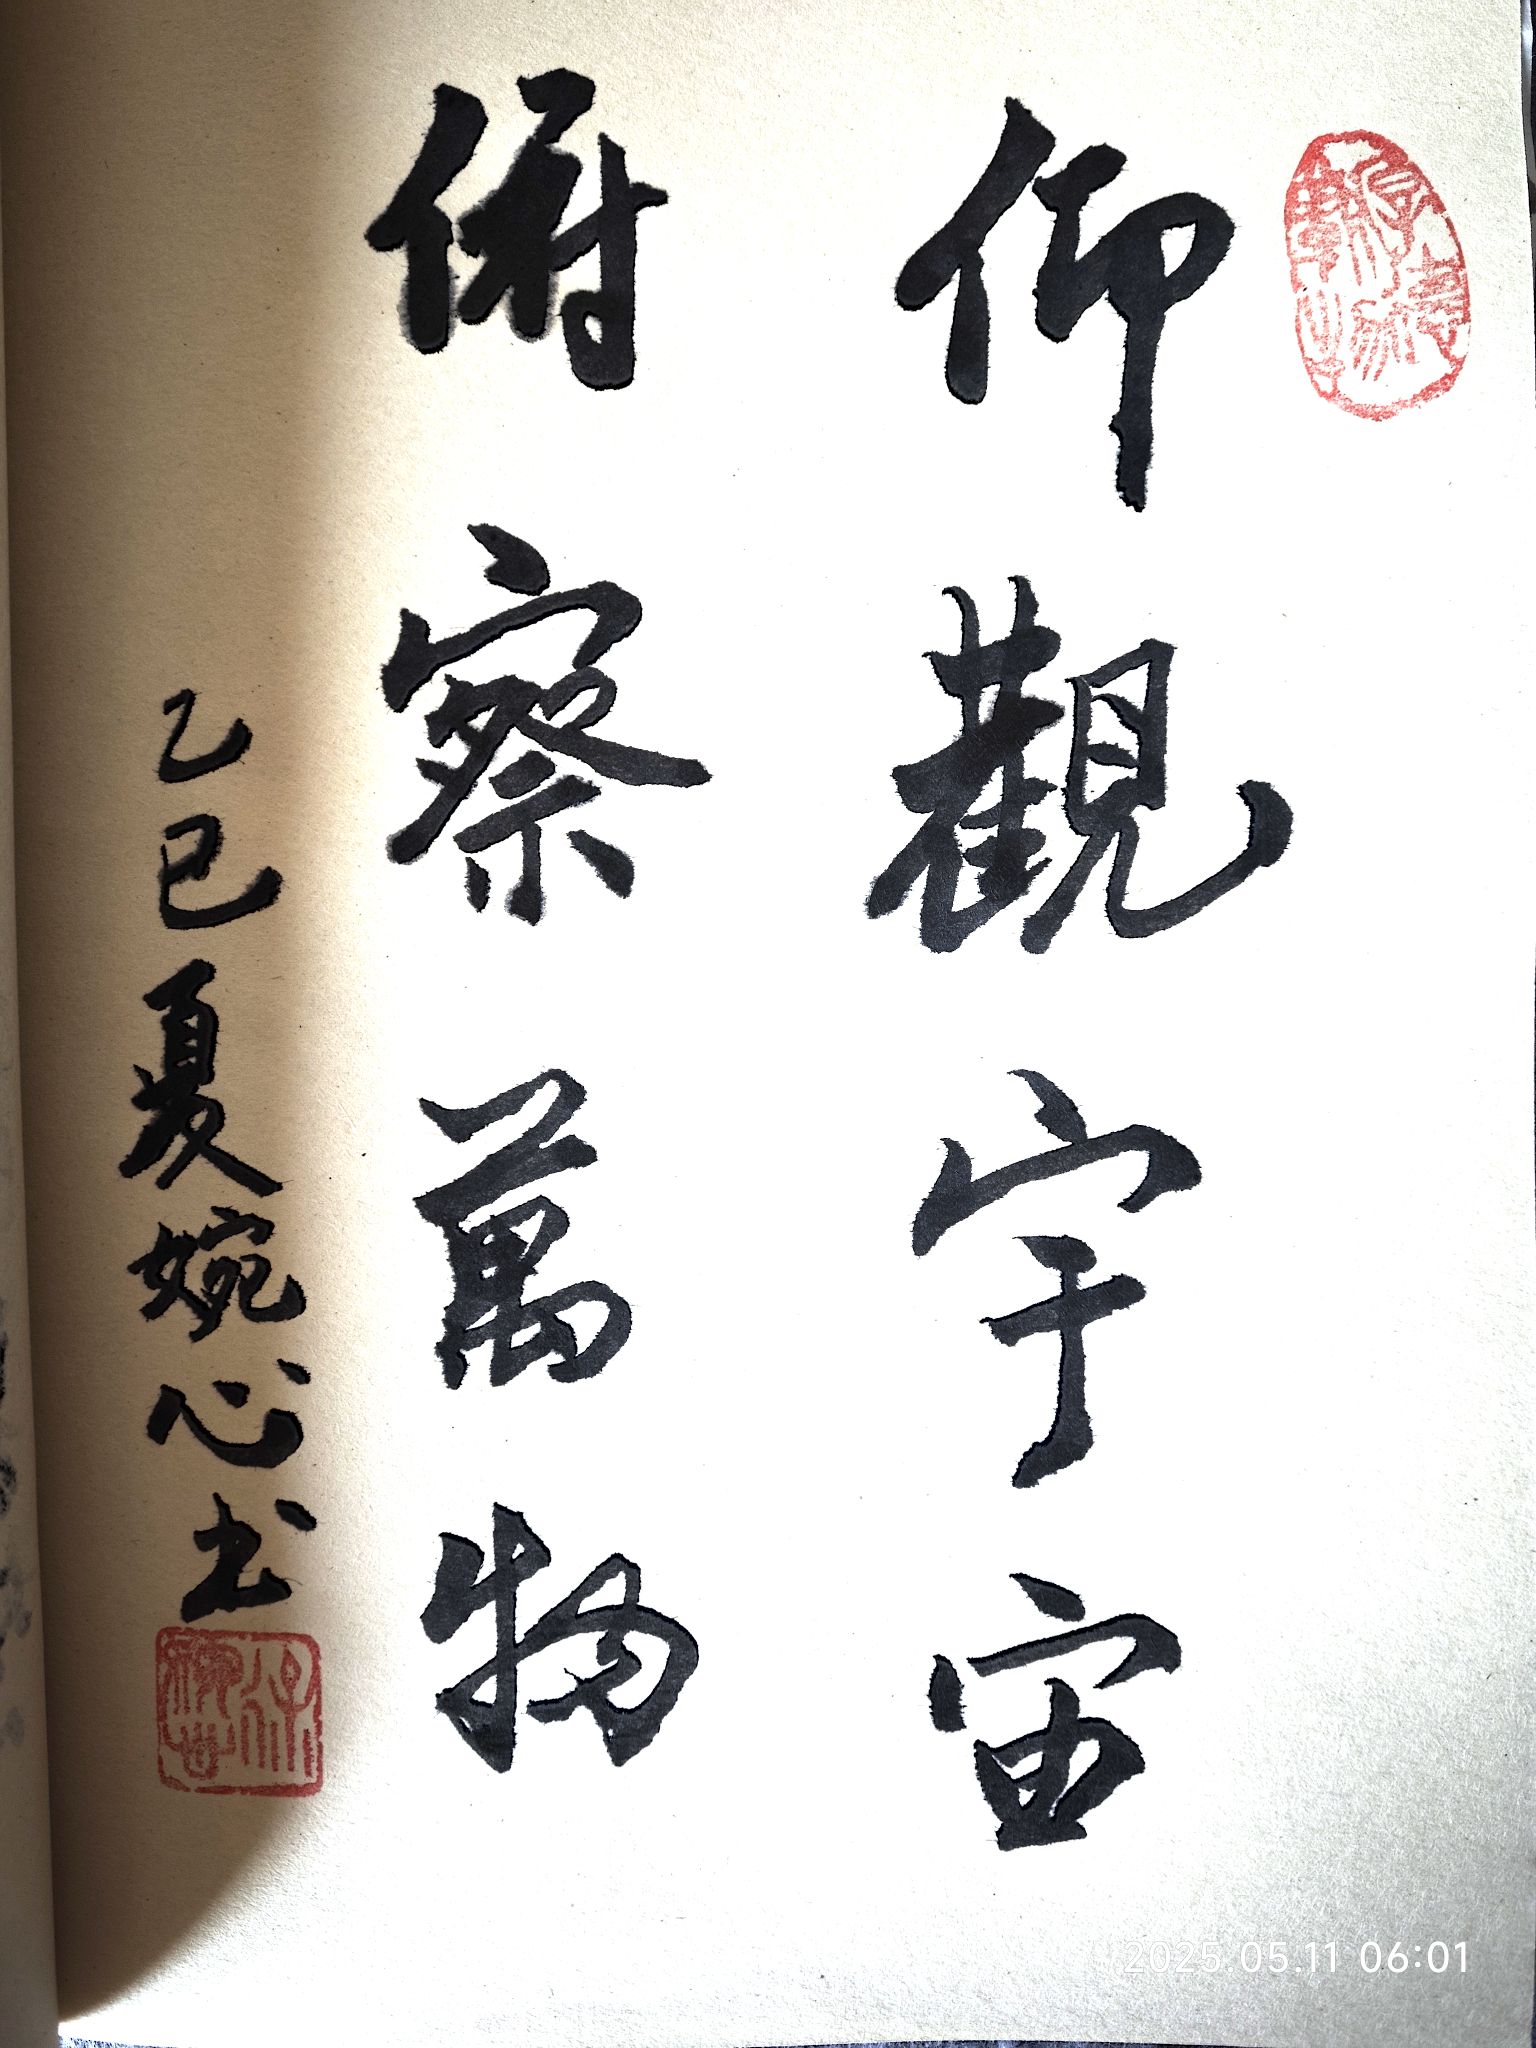 仰觀宇宙
俯察萬物
乙巳夏婉心书
2025.05.11 06:01